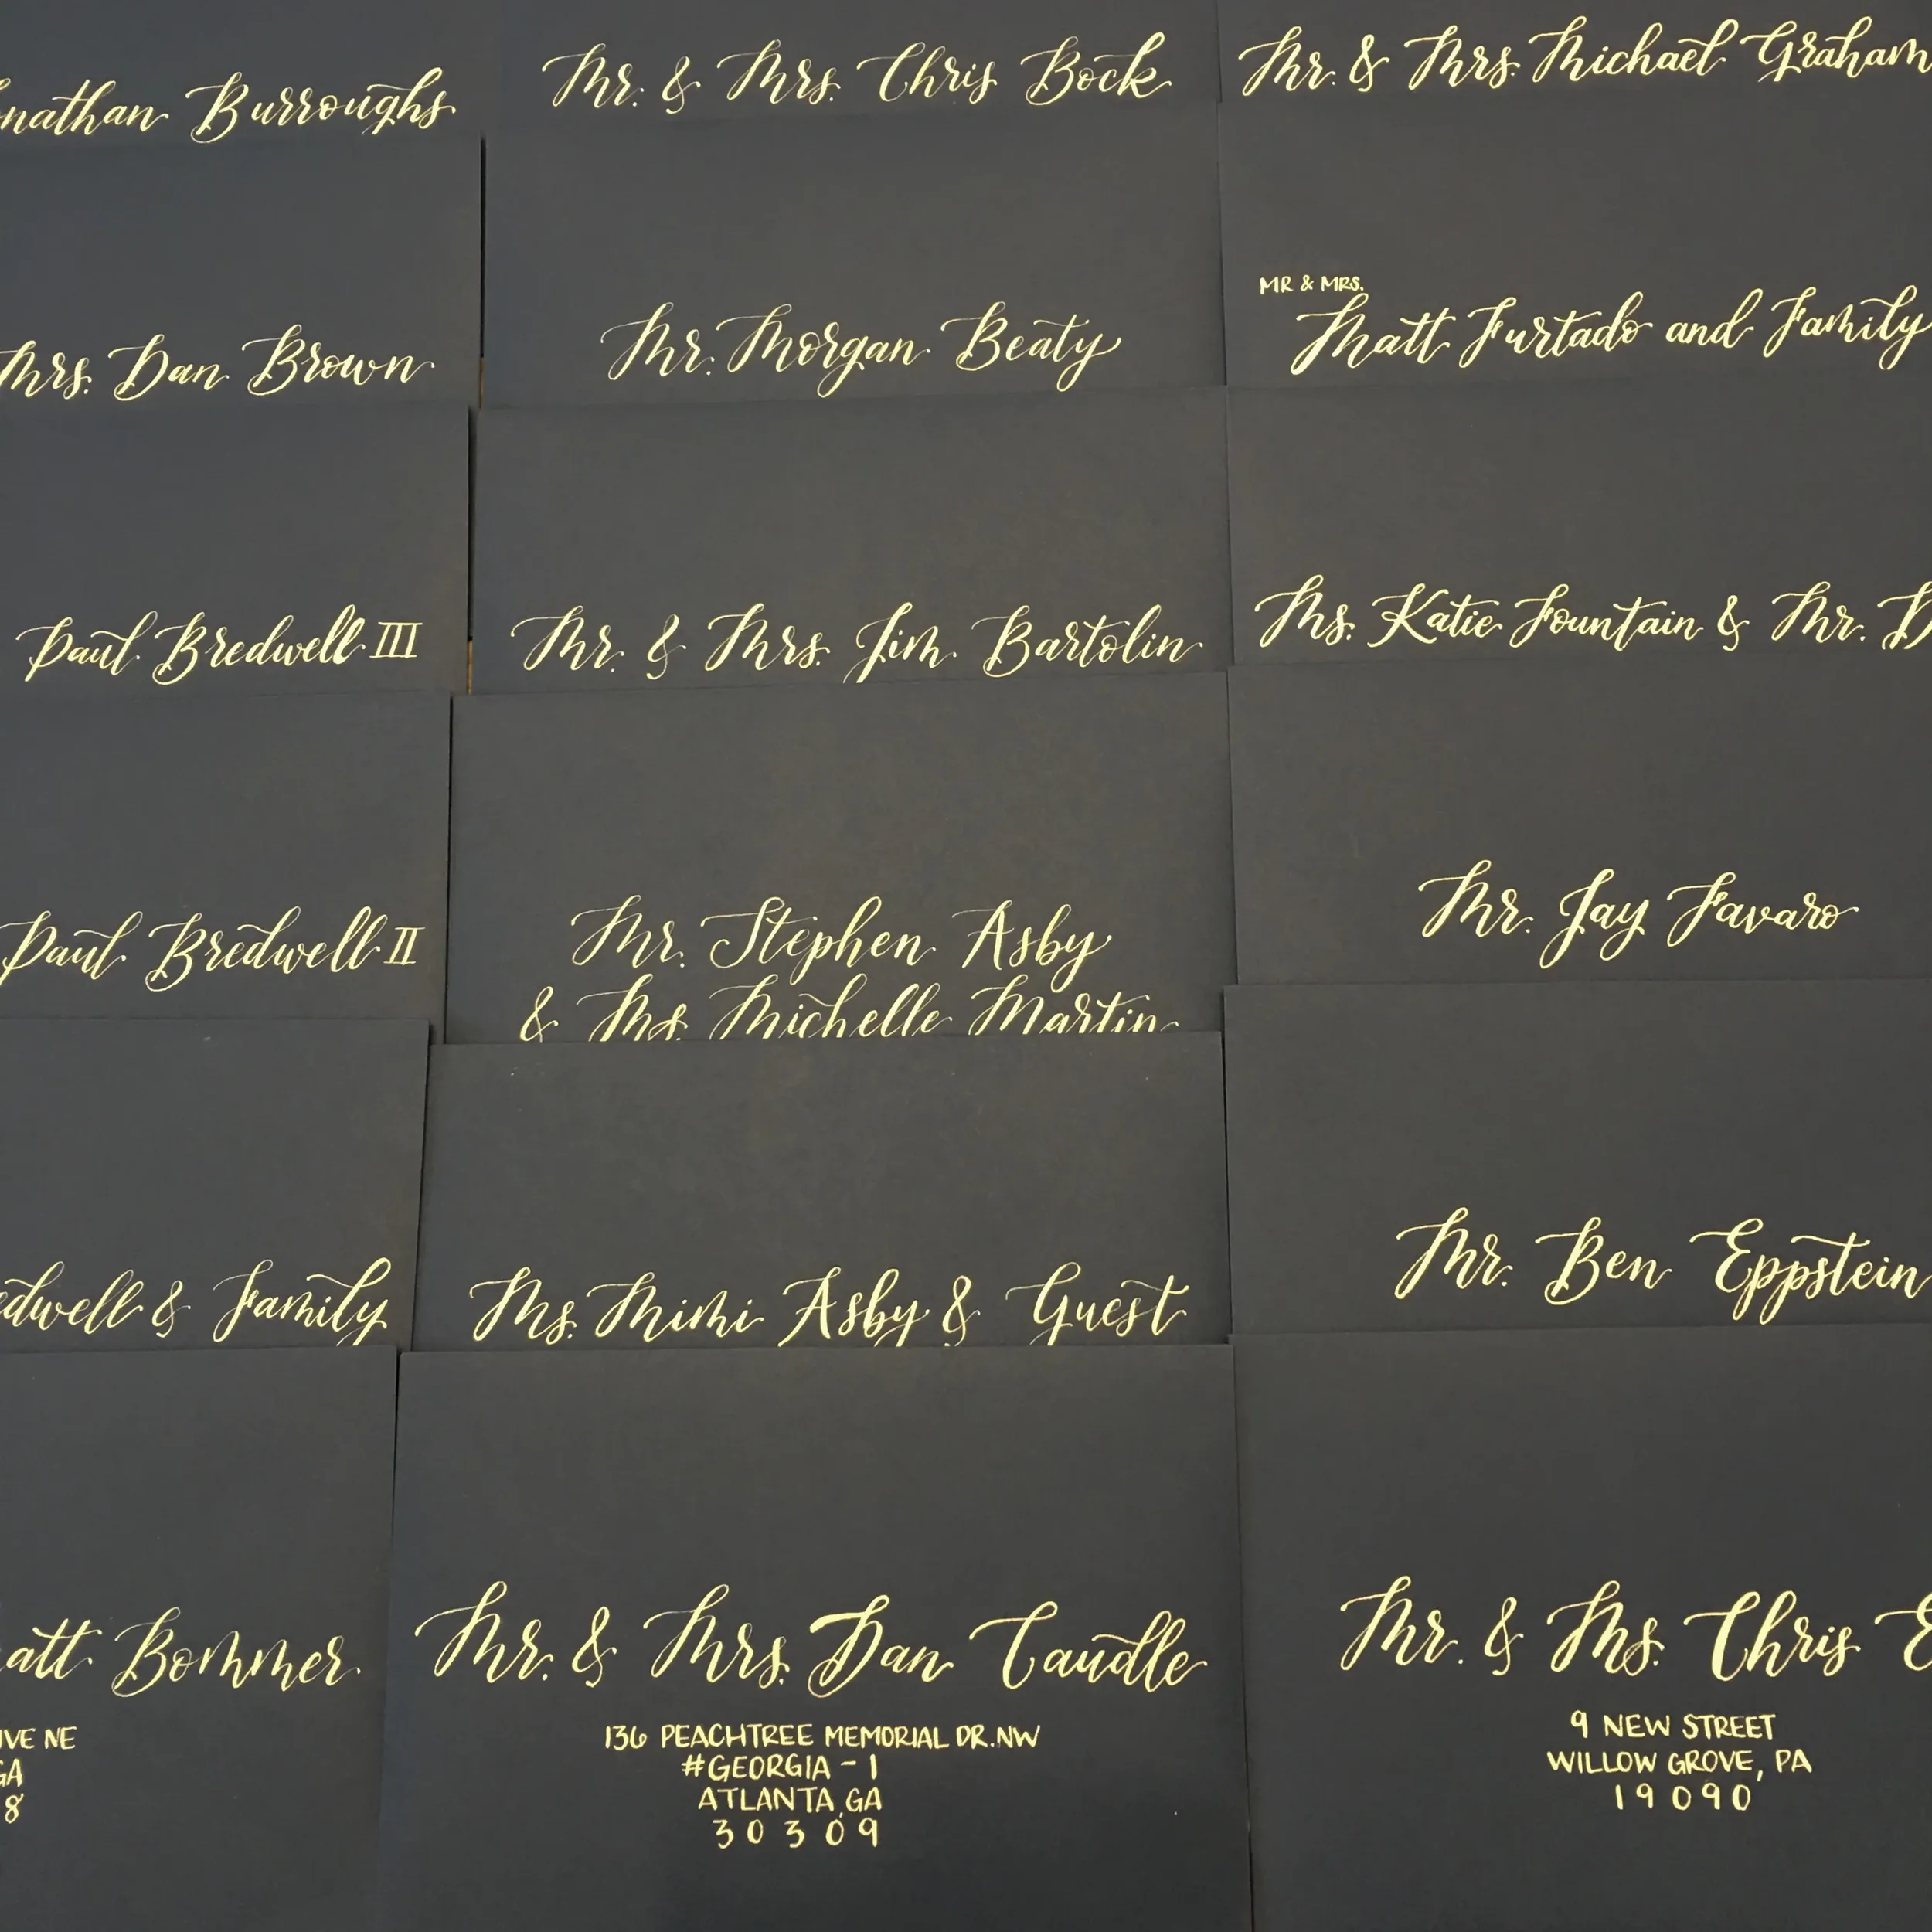 nathan Burroughs
Mrs. Dan Brown
Paul Bredwell III
Paul Bredwell II
edwell & Family
att Bommer
IVE NE
GA
8
Mr. & Mrs. Chris Bock
Mr. Morgan Beaty
Mr. & Mrs. Jim Bartolin
Mr. Stephen Asby
& Ms. Michelle Martin
Ms. Mimi Asby & Guest
Mr. & Mrs. Dan Caudle
136 PEACHTREE MEMORIAL DR. NW
#GEORGIA - 1
ATLANTA, GA
30309
Mr. & Mrs. Michael Graham
MR & MRS.
Matt Furtado and Family
Ms. Katie Fountain & Mr. D
Mr. Jay Favaro
Mr. Ben Eppstein
Mr. & Ms. Chris E
9 NEW STREET
WILLOW GROVE, PA
19090